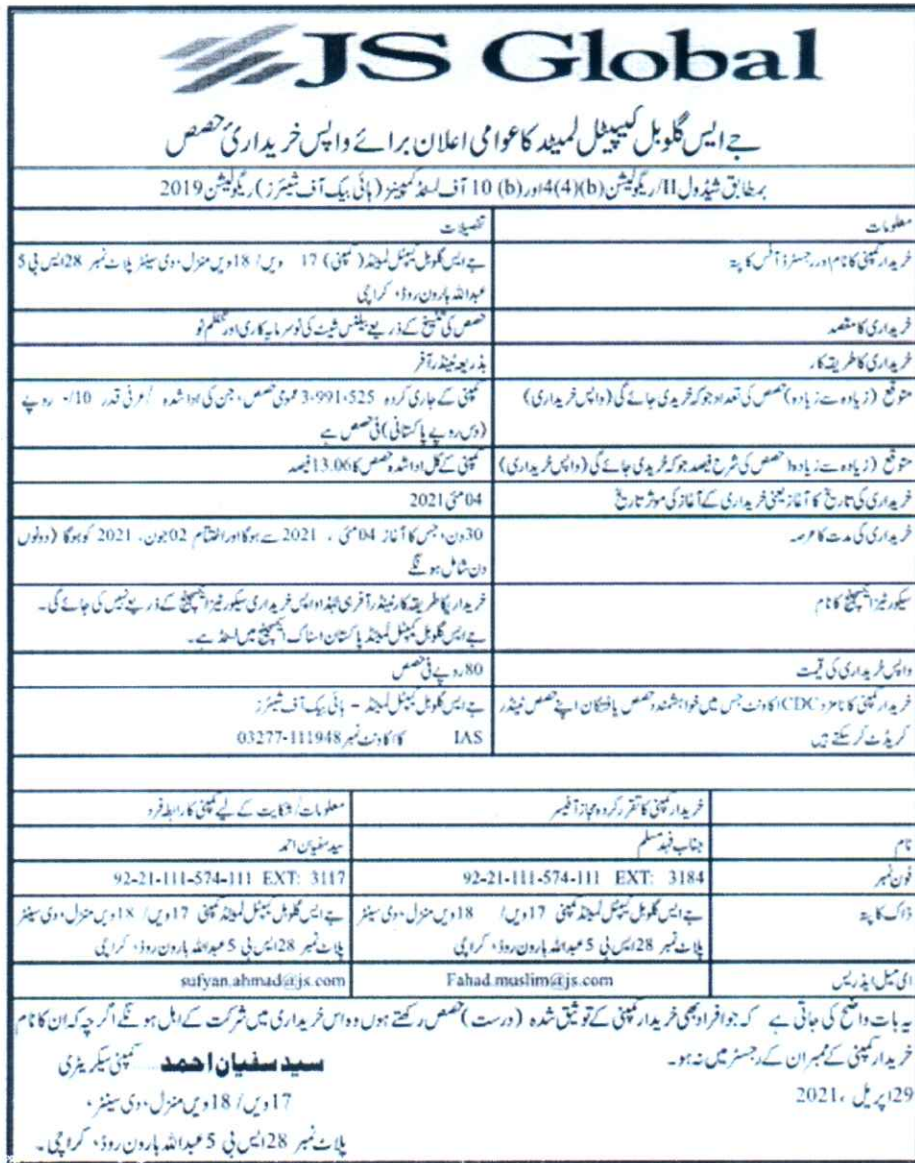 JS Global
جے ایس گلوبل کیپیٹل لمیٹڈ کا عوامی اعلان برائے واپس خریداریٔ حصص
بمطابق شیڈول II/ریگولیشن 4(4)(b) اور 10 (b) آف لسٹڈ کمپینز (بائی بیک آف شیئرز) ریگولیشن 2019
معلومات
تفصیلات
خریدار کمپنی کا نام اور رجسٹرڈ آفس کا پتہ
جے ایس گلوبل کیپٹل لمیٹڈ (کمپنی) 17 ویں/ 18 ویں منزل، دی سینٹر پلاٹ نمبر 28 ایس بی 5
عبداللہ ہارون روڈ، کراچی
خریداری کا مقصد
حصص کی تنسیخ کے ذریعے بیلنس شیٹ کی نو سرمایہ کاری اور تنظیم نو
خریداری کا طریقہ کار
بذریعہ ٹینڈر آفر
متوقع (زیادہ سے زیادہ) حصص کی تعداد جو کہ خریدی جائے گی (واپس خریداری)
کمپنی کے جاری کردہ 3،991،525 عمومی حصص، جن کی ادا شدہ /عرفی قدر 10/- روپے
(دس روپے پاکستانی) فی حصص ہے
متوقع (زیادہ سے زیادہ) حصص کی شرح فیصد جو کہ خریدی جائے گی (واپس خریداری)
کمپنی کے کل ادا شدہ حصص کا 13.06 فیصد
خریداری کی تاریخ کا آغاز یعنی خریداری کے آغاز کی موثر تاریخ
04 مئی 2021
خریداری کی مدت کا عرصہ
30 دن، جس کا آغاز 04 مئی ، 2021 سے ہوگا اور اختتام 02 جون، 2021 کو ہوگا (دونوں
دن شامل ہونگے
سیکورٹیز ایکسچینج کا نام
خریداریکا طریقہ کار ٹینڈر آفر ہی لہٰذا واپس خریداری سیکورٹیز ایکسچینج کے ذریعے نہیں کی جائے گی۔
جے ایس گلوبل کیپٹل لمیٹڈ پاکستان اسٹاک ایکسچینج میں لسٹڈ ہے۔
واپس خریداری کی قیمت
80 روپے فی حصص
خریدار کمپنی کا نامزد CDC اکاونٹ جس میں خواہشمند حصص یافتگان اپنے حصص ٹینڈر
کریڈٹ کر سکتے ہیں
جے ایس گلوبل کیپٹل لمیٹڈ - بائی بیک آف شیئرز
IAS کا اکاونٹ نمبر 03277-111948
خریدار کمپنی کا تقرر کردہ مجاز آفیسر
معلومات/ شکایت کے لیے کمپنی کا رابطہ فرد
نام
جناب فہد مسلم
سید سفیان احمد
فون نمبر
92-21-111-574-111 EXT: 3184
92-21-111-574-111 EXT: 3117
ڈاک کا پتہ
جے ایس گلوبل کیپٹل لمیٹڈ کمپنی 17 ویں/ 18 ویں منزل، دی سینٹر
پلاٹ نمبر 28 ایس بی 5 عبداللہ ہارون روڈ، کراچی
جے ایس گلوبل کیپٹل لمیٹڈ کمپنی 17 ویں/ 18 ویں منزل، دی سینٹر
پلاٹ نمبر 28 ایس بی 5 عبداللہ ہارون روڈ، کراچی
ای میل ایڈریس
Fahad.muslim@js.com
sufyan.ahmad@js.com
یہ بات واضح کی جاتی ہے کہ جو افراد بھی خریدار کمپنی کے توثیق شدہ (درست) حصص رکھتے ہوں وہ اس خریداری میں شرکت کے اہل ہونگے اگر چہ کہ ان کا نام
خریدار کمپنی کے ممبران کے رجسٹر میں نہ ہو۔
29 اپریل ، 2021
سید سفیان احمد ...... کمپنی سیکریٹری
17 ویں/ 18 ویں منزل، دی سینٹر ،
پلاٹ نمبر 28 ایس بی 5 عبداللہ ہارون روڈ، کراچی۔